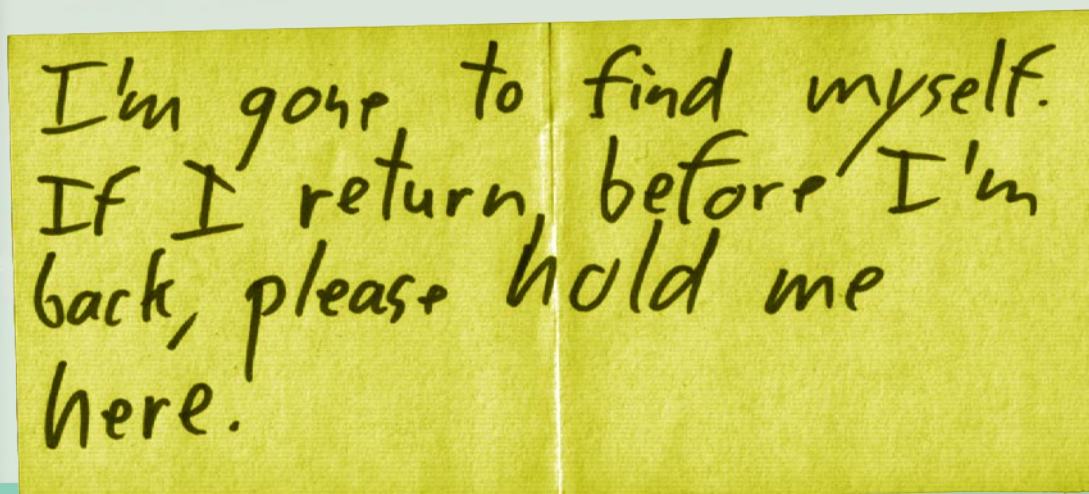 I'm gone to find myself.
If I return, before I'm
back, please hold me
here.